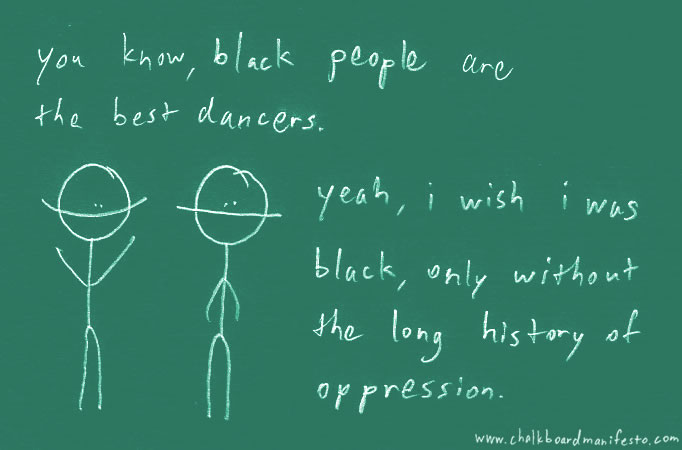 you know, black people are
the best dancers.
yeah, i wish i was
black, only without
the long history of
oppression.
www.chalkboardmanifesto.com